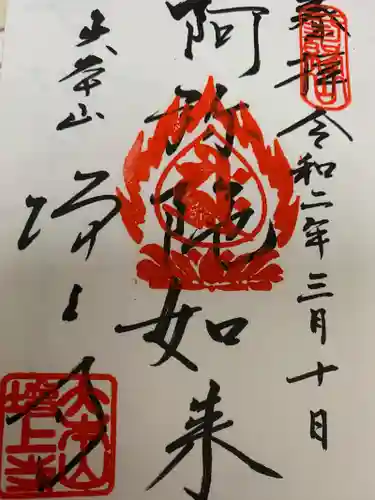 奉拝 令和二年三月十日
阿弥陀如来
大本山 増上寺
大本山
増上寺